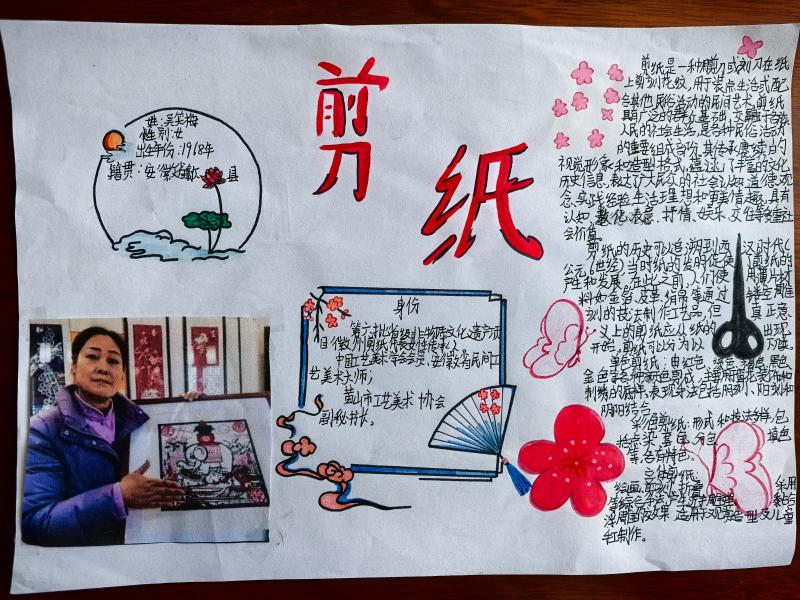 剪刀
纸
姓:吴笑梅
性别:女
出生年份:1968年
籍贯:安徽省歙 县
身份
第六批省级非物质文化遗产项
目(徽州剪纸)代表性传承人
中国工艺美术学会会员、安徽省民间工
艺美术大师;
黄山市工艺美术协会
副秘书长。
剪纸是一种用剪刀或刻刀在纸
上剪刻花纹,用于装点生活或配
合其他民俗活动的民间艺术。剪纸
具有广泛的群众基础,交融于各族
人民的社会生活,是各种民俗活动
的重要组成部分。其传承赓续的
视觉形象和造型格式,蕴涵了丰富的文化
历史信息,表达了广大民众的社会认知、道德观
念、实践经验、生活理想和审美情趣,具有
认知、教化、表意、抒情、娱乐、交往等多重社
会价值。
剪纸的历史可以追溯到西汉时代(
公元前6世纪),当时纸的发明促使了剪纸的
产生和发展。在此之前,人们使用薄片材
料如金箔、皮革、绢帛等通过 镂空雕
刻的技法制作工艺品,但 真正意
义上的剪纸应从纸的 出现
开始。剪纸可以分为以 下几类。
单色剪纸:由红色、绿色、褐色、黑色、
金色等各种颜色剪成,主要用于窗花装饰和
刺绣的底样,表现手法包括阴刻、阳刻和
阴阳结合。
彩色剪纸:形式和技法多样,包
括点染、套色、分色、 填色
等,各有特色。
立体剪纸:
绘画、剪刻、折叠 采用
等综合手法 粘合
深周围 效果,适用于观赏造型及儿童
手工制作。